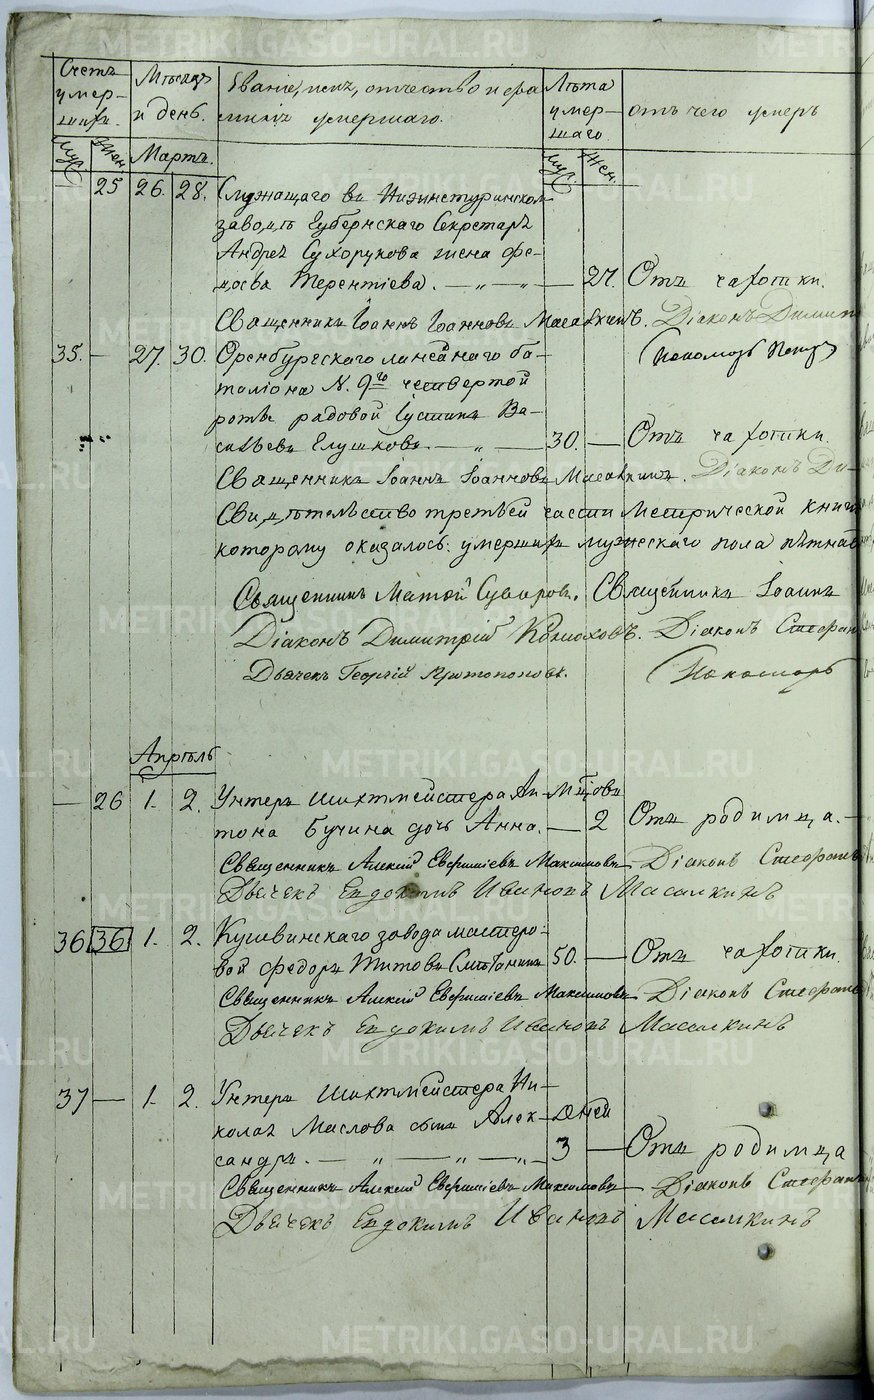 Счетъ умер- шихъ.
Мѣсяцъ и день.
Званіе, имя, отчество и фа милія умершаго.
Лѣта умер- шаго.
отъ чего умеръ
Муж. Жен. Мартъ. Муж. Жен.
25 26. 28. Служащаго въ Нижнетуринскомъ
заводѣ Губернскаго Секретаря
Андрея Сухорукова жена Ѳе-
досья Терентіева. — „ — 27. Отъ чахотки.
Священникъ Іоаннъ Іоанновъ Масалкинъ. Діаконъ Димит
35. — 27. 30. Оренбургскаго линейнаго ба- Пономарь Петръ
таліона N. 9го четвертой
роты рядовой Іустинъ Ва-
сильевъ Глушковъ. — „ — 30. — Отъ чахотки.
Священникъ Іоаннъ Іоанновъ Масалкинъ. Діаконъ Ди-
Свидѣтельство третьей части Метрической книги
которому оказалось: умершихъ мужескаго пола пѣтнад
Священникъ Матѳей Суворовъ. Священникъ Іоаннъ
Діаконъ Димитрій Конюховъ. Діаконъ Стефанъ
Дьячекъ Георгій Протопоповъ. Пономарь
Апрѣль
— 26 1. 2. Унтеръ Шихтмейстера Ан- Мѣсяцовъ
тона Бучина дочь Анна. — 2 Отъ родимца. —
Священникъ Алексій Евфиміевъ Максимовъ Діаконъ Стефанъ
Дьячекъ Евдокимъ Ивановъ Масалкинъ
36 36 1. 2. Кушвинскаго завода мастеро-
вой Федоръ Титовъ Смѣтанинъ 50. — Отъ чахотки.
Священникъ Алексій Евфиміевъ Максимовъ Діаконъ Стефанъ
Дьячекъ Евдокимъ Ивановъ Масалкинъ
37 — 1. 2. Унтеръ Шихтмейстера Ни-
колая Маслова сынъ Алек- Дней
сандръ. — „ — „ — „ — 3 — Отъ родимца
Священникъ Алексій Евфиміевъ Максимовъ Діаконъ Стефанъ
Дьячекъ Евдокимъ Ивановъ Масалкинъ
METRIKI.GASO-URAL.RU